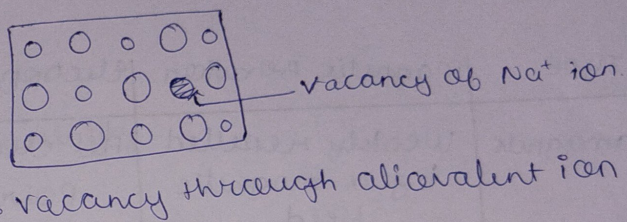 vacancy of Na⁺ ion.
vacancy through aliovalent ion